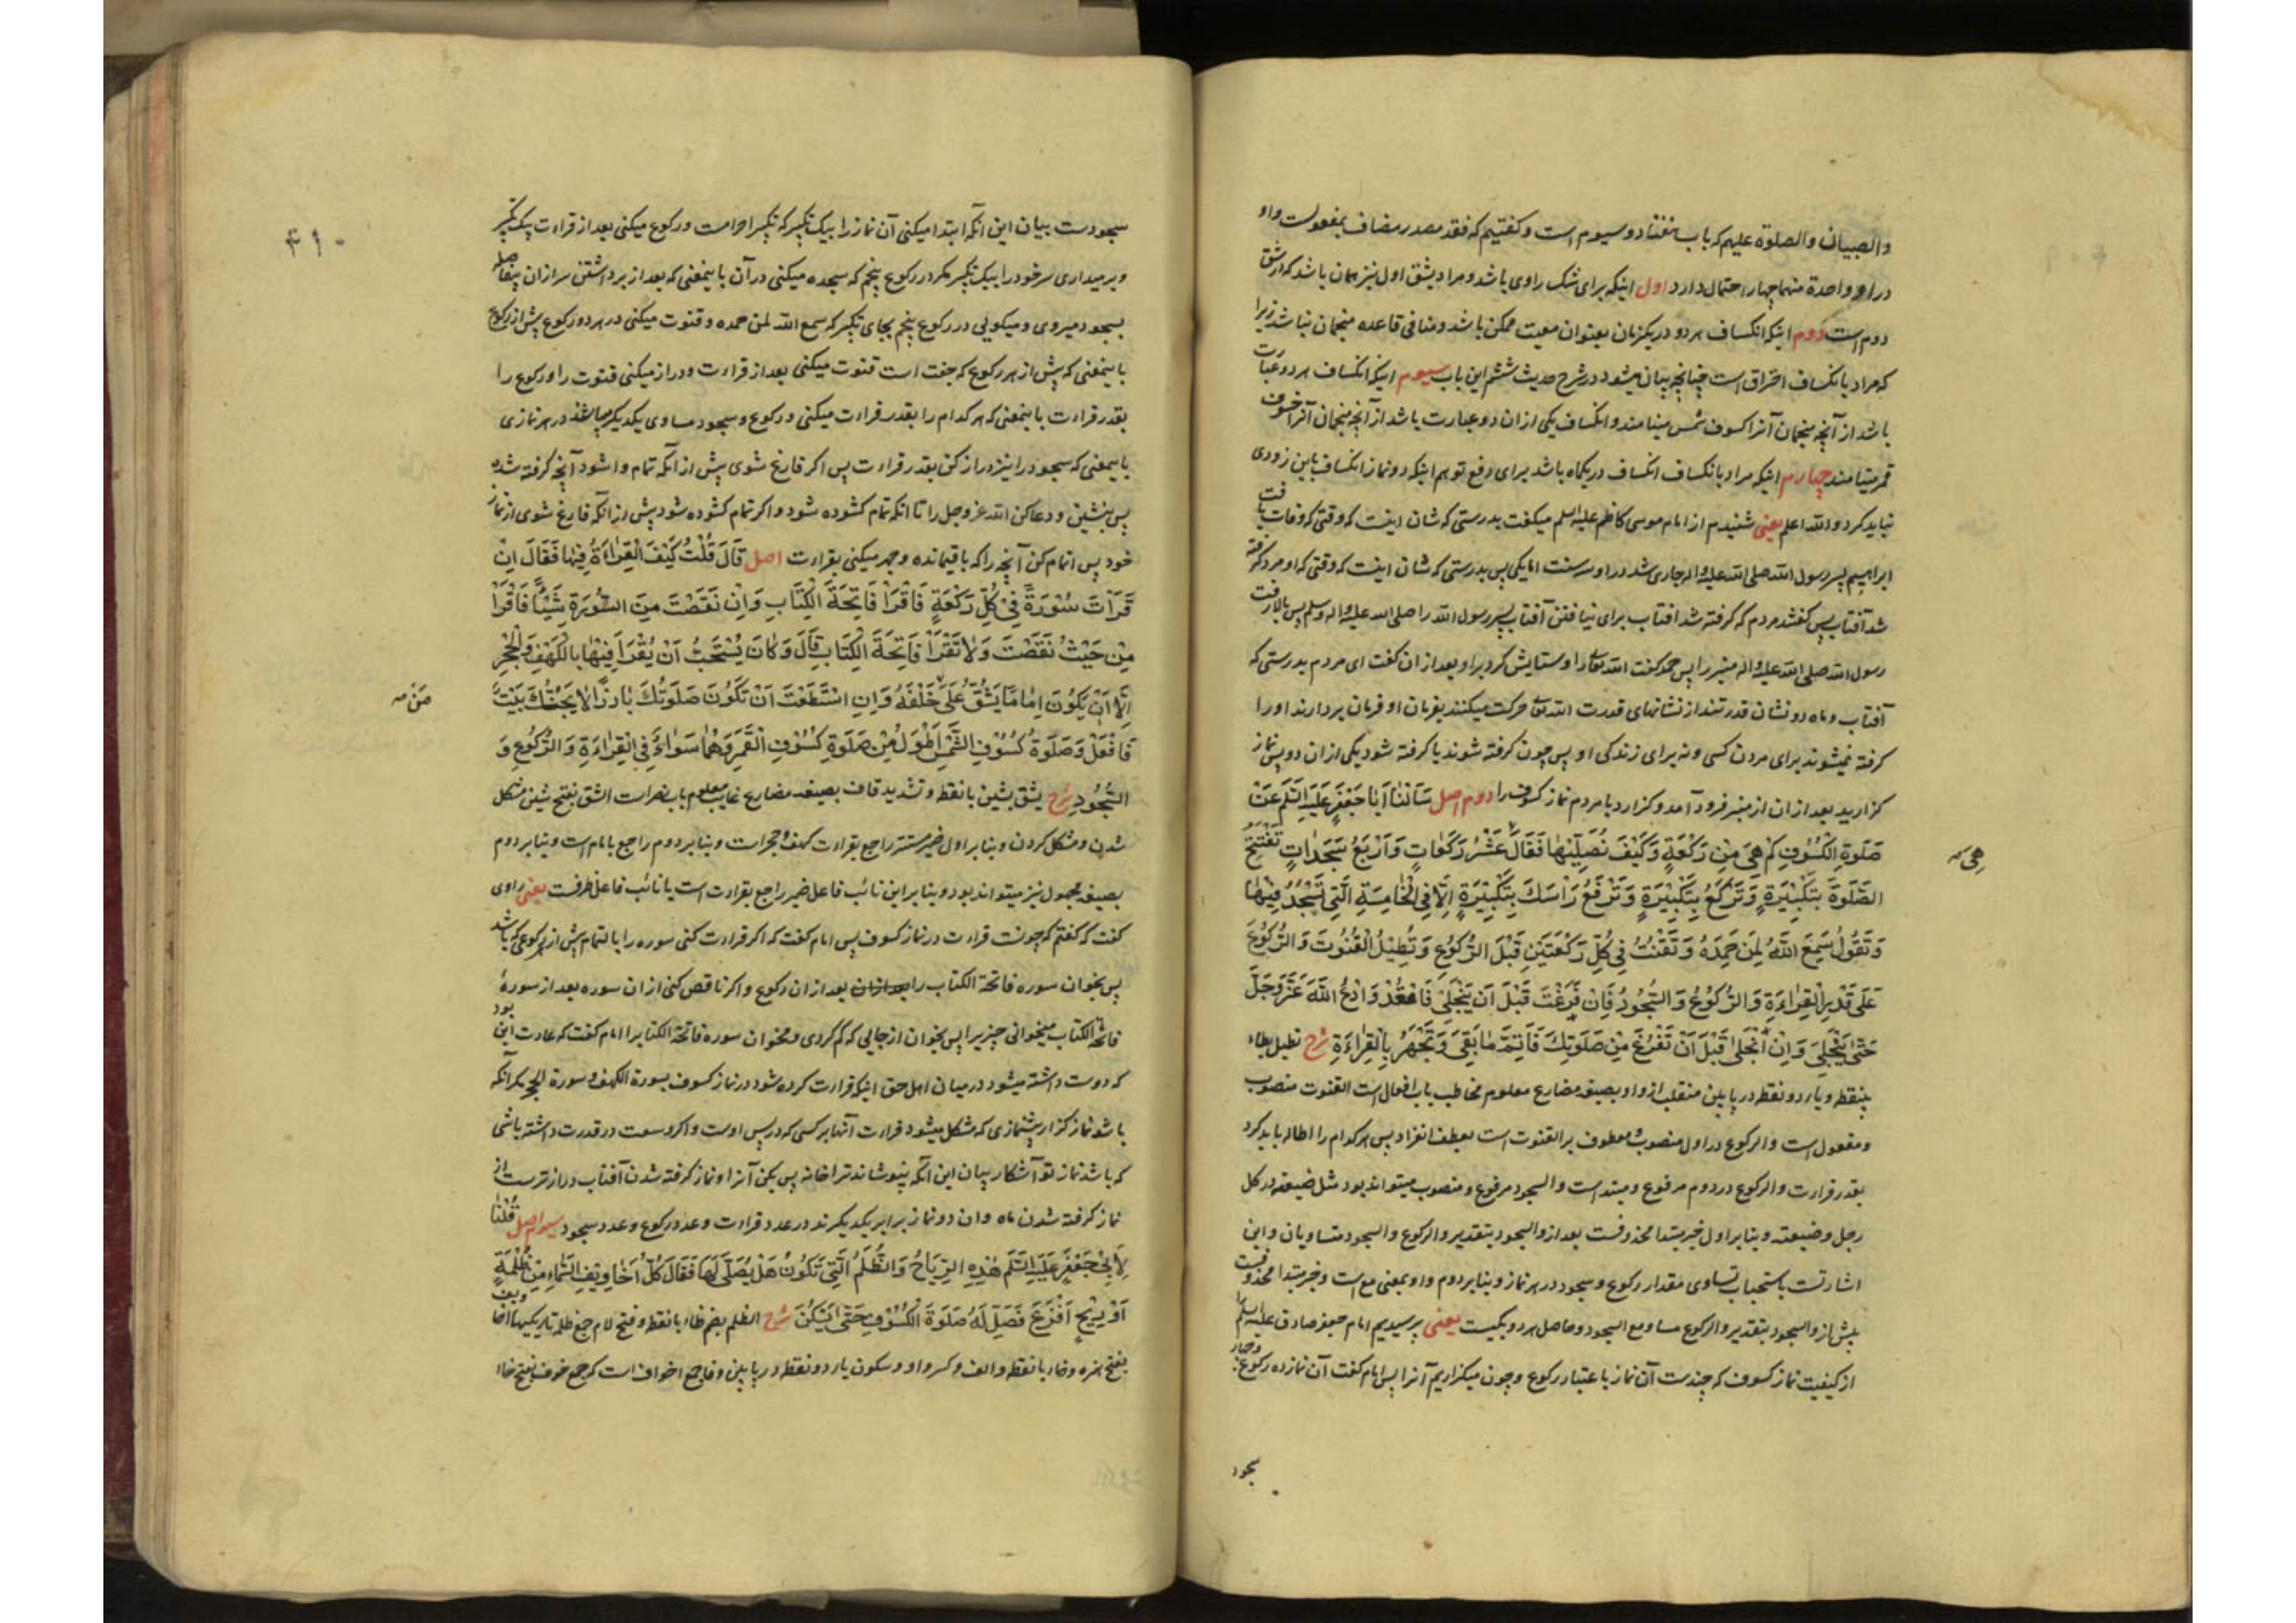 والصبیان والصلوة علیهم که باب هفتاد و سیوم است و کفتیم که فقد مصدر مضاف بمفعولست واو
در او واحدة منهما چهار احتمال دارد اول اینکه برای شک راوی باشد و مراد بشق اول نیز همان باشد که از شق
دوم است دوم اینکه انکساف هر دو در یکزمان بعنوان معیت ممکن باشد و منافی قاعده منجمان نباشد زیرا
که مراد بانکساف احتراق است چنانچه بیان میشود در شرح حدیث ششم این باب سیوم اینکه انکساف هر دو عبارت
باشد از آنچه منجمان آنرا کسوف شمس مینامند و انکساف یکی از ان دو عبارت باشد از آنچه منجمان آنرا خسوف
قمر مینامند چهارم اینکه مراد بانکساف انکساف در یکماه باشد برای دفع توهم اینکه دو نماز انکساف باین زودی
نباید کرد والله اعلم یعنی شنیدم از امام موسی کاظم علیه السلم میکفت بدرستی که شان اینست که وقتی که وفات یافت
ابراهیم پسر رسول الله صلی الله علیه واله جاری شد در او سه سنت اما یکی پس بدرستی که شان اینست که وقتی که او مرد کرفته
شد آفتاب پس کفتند مردم که کرفته شد افتاب برای نیافتن آفتاب پسر رسول الله را صلی الله علیه واله وسلم پس بالا رفت
رسول الله صلی الله علیه واله منبر را پس حمد کفت الله تعالی را و ستایش کرد بر او بعد از ان کفت ای مردم بدرستی که
آفتاب و ماه دو نشان قدرتند از نشانهای قدرت الله تعالی حرکت میکنند بفرمان او فرمان بردارند اورا
کرفته نمیشوند برای مردن کسی و نه برای زندکی او پس چون کرفته شوند یا کرفته شود یکی از ان دو پس نماز
کزارید بعد از ان از منبر فرود آمد و کزارد با مردم نماز کسوف را دوم اصل سَاَلْنا اَبا جَعْفَرٍ عَلَیْهِ السَّلَم عَنْ
صَلوةِ الْکُسُوفِ کَمْ هِیَ مِن رَکْعَةٍ وَکَیْفَ نُصَلِّیها فَقالَ عَشْرُ رَکَعاتٍ وَاَرْبَعُ سَجَداتٍ تَفْتَتِحُ
هی
الصَّلوةَ بِتَکْبِیرَةٍ وَتَرْکَعُ بِتَکْبِیرَةٍ وَتَرْفَعُ رَاْسَكَ بِتَکْبِیرَةٍ اِلّا فِی الْخامِسَةِ الَّتی تَسْجُدُ فِیها
وَتَقُولُ سَمِعَ اللّهُ لِمَن حَمِدَهُ وَتَقْنُتُ فِی کُلِّ رَکْعَتَیْنِ قَبْلَ الرُّکُوعِ وَتُطِیلُ الْقُنُوتَ وَالرُّکُوعَ
عَلی قَدْرِ الْقِراءَةِ وَالرُّکُوعُ وَالسُّجُودُ فَاِنْ فَرَغْتَ قَبْلَ اَن یَنْجَلِیَ فَاقْعُدْ وَادْعُ اللّهَ عَزَّ وَجَلَّ
حَتّی یَنْجَلِیَ وَاِنِ انْجَلی قَبْلَ اَنْ تَفْرُغَ مِن صَلوتِكَ فَاَتِمَّ ما بَقِیَ وَتَجْهَرُ بِالْقِراءَةِ شرح تطیل بطاء
بینقطه و یاء دو نقطه در پایین منقلب از واو بصیغه مضارع معلوم مخاطب باب افعال است القنوت منصوب
و مفعول است والرکوع در اول منصوب و معطوف بر القنوت است بعطف انفراد پس هر کدام را اطاله باید کرد
بقدر قراءت والرکوع در دوم مرفوع و مبتدا است والسجود مرفوع و منصوب میتواند بود مثل ضیعته در کل
رجل وضیعته و بنابر اول خبر مبتدا محذوفست بعد از والسجود بتقدیر والرکوع والسجود متساویان و این
اشارتست باستحباب تساوی مقدار رکوع و سجود در هر نماز و بنابر دوم واو بمعنی مع است و خبر مبتدا محذوفست
پیش از والسجود بتقدیر والرکوع مساو مع السجود و حاصل هر دو یکیست یعنی پرسیدیم امام جعفر صادق علیه السلم را
از کیفیت نماز کسوف که چندست آن نماز باعتبار رکوع و چون میکزاریم آنرا پس امام کفت آن نماز ده رکوع و چهار
سجود
۴۱۰
سجودست بیان این آنکه ابتدا میکنی آن نماز را بیک تکبیر که تکبیر احرامست و رکوع میکنی بعد از قراءت بیک تکبیر
و برمیداری سر خود را بیک تکبیر مکر در رکوع پنجم که سجده میکنی در آن باینمعنی که بعد از برداشتن سر از ان بیفاصله
بسجود میروی و میکویی در رکوع پنجم بجای تکبیر که سمع الله لمن حمده و قنوت میکنی در هر دو رکوع پیش از رکوع
باینمعنی که پیش از هر رکوع که جفت است قنوت میکنی بعد از قراءت و دراز میکنی قنوت را و رکوع را
بقدر قراءت باینمعنی که هر کدام را بقدر قراءت میکنی و رکوع و سجود مساوی یکدیکر میباشند در هر نمازی
باینمعنی که سجود را نیز دراز کن بقدر قراءت پس اکر فارغ شوی پیش از انکه تمام وا شود آنچه کرفته شده
پس بنشین و دعا کن الله عز وجل را تا انکه تمام کشوده شود و اکر تمام کشوده شود پیش از آنکه فارغ شوی از نماز
خود پس اتمام کن آنچه را که باقیمانده و جهر میکنی بقراءت اصل قَالَ قُلْتُ کَیْفَ الْقِراءَةُ فِیها فَقالَ اِنْ
قَرَاْتَ سُورَةً فِی کُلِّ رَکْعَةٍ فَاقْرَاْ فاتِحَةَ الْکِتابِ وَاِن نَقَصْتَ مِنَ السُّورَةِ شَیْئًا فَاقْرَاْ
مِنْ حَیْثُ نَقَصْتَ وَلا تَقْرَاْ فاتِحَةَ الْکِتابِ قالَ وَکانَ یُسْتَحَبُّ اَنْ یُقْرَاَ فِیها بِالْکَهْفِ وَالْحِجْرِ
اِلّا اَنْ یَکُونَ اِمامًا یَشُقُّ عَلی خَلْفَهُ وَاِنِ اسْتَطَعْتَ اَنْ تَکُونَ صَلوتُكَ بارِزًا لا یَجُنُّكَ بَیْتٌ
مَنْ
فَافْعَلْ وَصَلوةُ کُسُوفِ الشَّمْسِ اَطْوَلُ مِنْ صَلوةِ کُسُوفِ الْقَمَرِ وَهُما سَواءٌ فِی الْقِراءَةِ وَالرُّکُوعِ وَ
السُّجُودِ شرح یشق بشین با نقطه و تشدید قاف بصیغه مضارع غایب معلوم باب نصر است الشق بفتح شین مشکل
شدن و مشکل کردن و بنابر اول ضمیر مستتر راجع بقراءت کهف و حجر است و بنابر دوم راجع بامام است و بنابر دوم
بصیغه مجهول نیز میتواند بود و بنابر این نائب فاعل ضمیر راجع بقراءت است یا نائب فاعل ظرفست یعنی راوی
کفت که کفتم که چونست قراءت در نماز کسوف پس امام کفت که اکر قراءت کنی سوره را بالتمام پیش از هر رکوعی که باشد
پس بخوان سوره فاتحة الکتاب را بعد از ان رکوع و اکر ناقص کنی از ان سوره بعد از سورۀ
فاتحة الکتاب میخوانی چیزیرا پس بخوان از جایی که کم کردی و مخوان سوره فاتحة الکتاب را امام کفت که عادت این بود
که دوست داشته میشود در میان اهل حق اینکه قراءت کرده شود در نماز کسوف بسورة الکهف و سورة الحجر مکر آنکه
باشد نماز کزار پیشنمازی که مشکل میشود قراءت آنها بر کسی که در پس اوست و اکر وسعت در قدرت داشته باشی
که باشد نماز تو آشکار بیان این آنکه نپوشاند ترا خانه پس بکن آنرا و نماز کرفته شدن آفتاب درازترست از
نماز کرفته شدن ماه وان دو نماز برابر یکدیکرند در عدد قراءت و عدد رکوع و عدد سجود سیوم اصل قُلْنا
لِاَبِی جَعْفَرٍ عَلَیْهِ السَّلَم هذِهِ الرِّیاحُ وَالظُّلَمُ الَّتِی تَکُونُ هَلْ یُصَلّی لَها فَقالَ کُلُّ اَخاوِیفِ السَّماءِ مِن ظُلْمَةٍ
اَوْ رِیحٍ اَوْ فَزَعٍ فَصَلِّ لَهُ صَلوةَ الْکُسُوفِ حَتّی یَسْکُنَ شرح الظلم بضم ظاء با نقطه و فتح لام جمع ظلمة تاریکیها اخاویف
بفتح همزه وخاء با نقطه والف وکسر واو وسکون یاء دو نقطه در پایین وفا جمع اخواف است که جمع خوف بفتح خاء